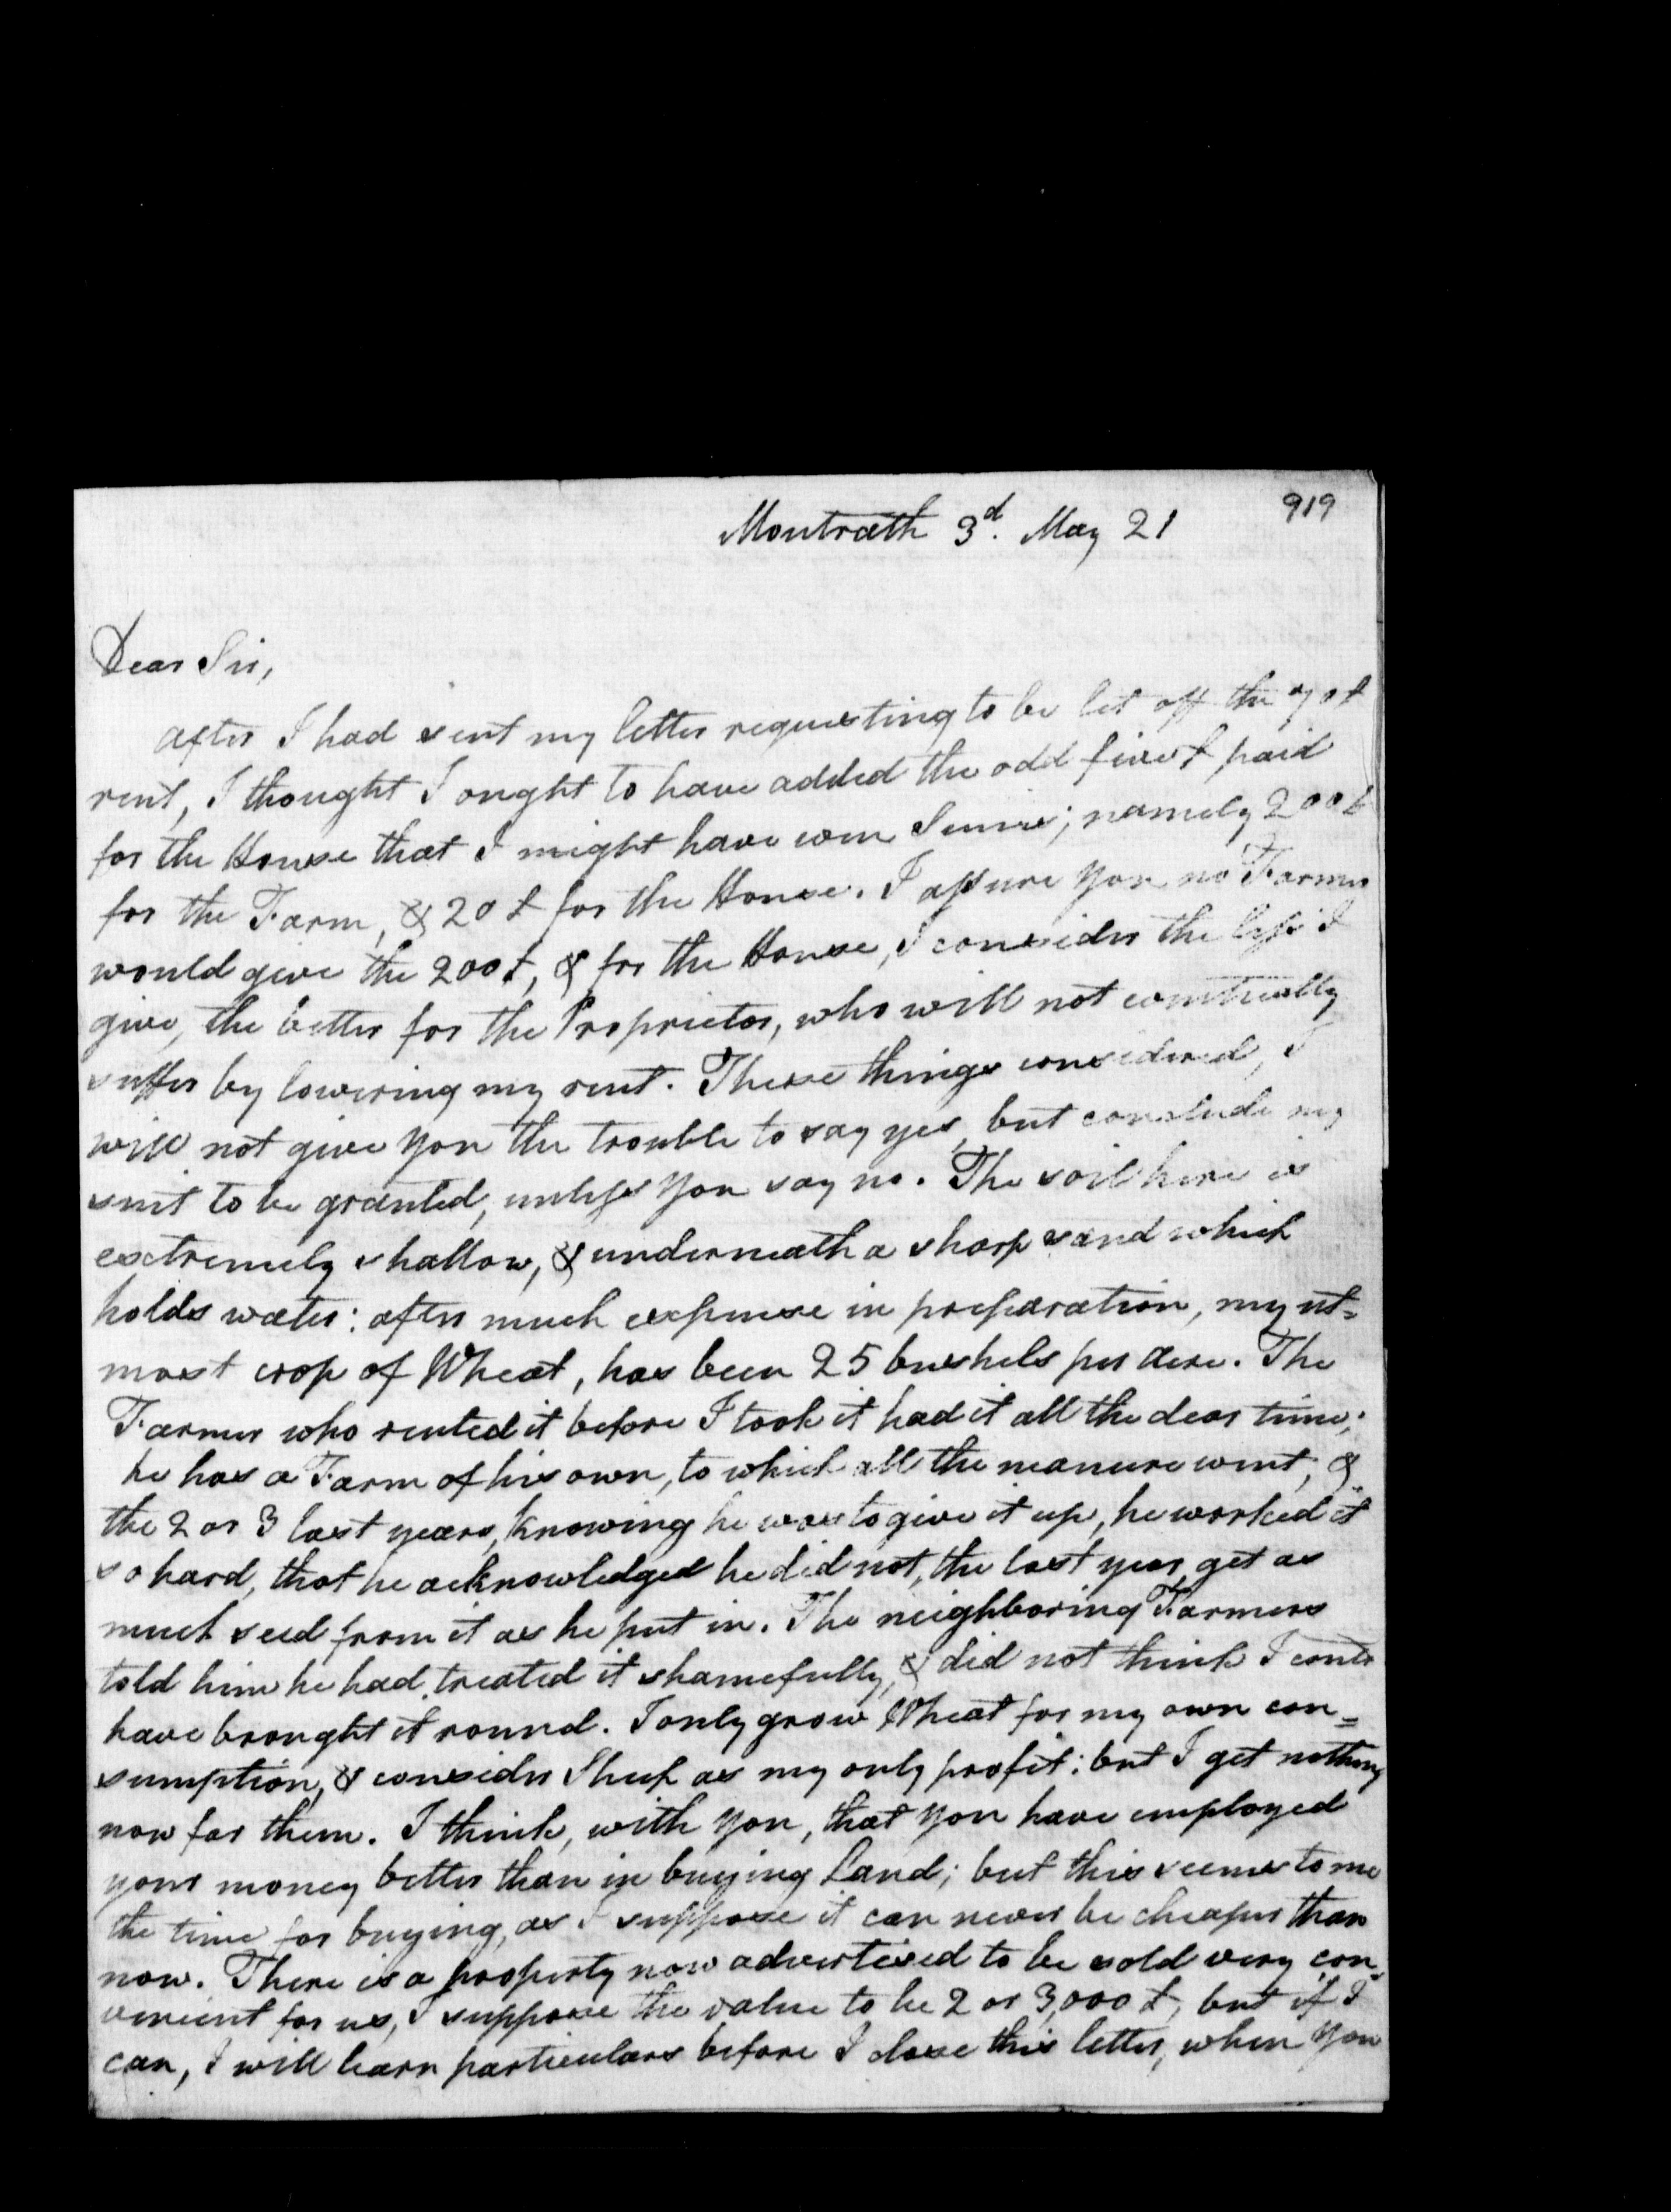 919
Montrath 3d. May 21
Dear Sir,
after I had sent my letter requesting to be let off the
rent, I thought I ought to have added the odd five £ paid
for the House that I might have even Sums; namely 200£
for the Farm, & 20£ for the House. I assure you no Farmer
would give the 200£, & for the House, I consider the less I
give, the better for the Proprietor, who will not eventually
suffer by lowering my rent. These things considered, I
will not give you the trouble to say yes, but conclude my
suit to be granted, unless you say no. The soil here is
extremely shallow, & underneath a sharp sand which
holds water: after much expense in preparation, my ut=
most crop of Wheat, has been 25 bushels per acre. The
Farmer who rented it before I took it had it all the dear time;
he has a Farm of his own, to which all the manure went; &
the 2 or 3 last years, knowing he was to give it up, he worked it
so hard, that he acknowledged he did not, the last year, get as
much seed from it as he put in. The neighboring Farmers
told him he had treated it shamefully, & did not think I could
have brought it round. I only grow Wheat for my own con=
sumption, & consider Sheep as my only profit: but I get nothing
now for them. I think, with you, that you have employed
your money better than in buying Land; but this seems to me
the time for buying, as I suppose it can never be cheaper than
now. There is a property now advertised to be sold very con=
venient for us, I suppose the value to be 2 or 3,000£, but if I
can, I will learn particulars before I close this letter, when you